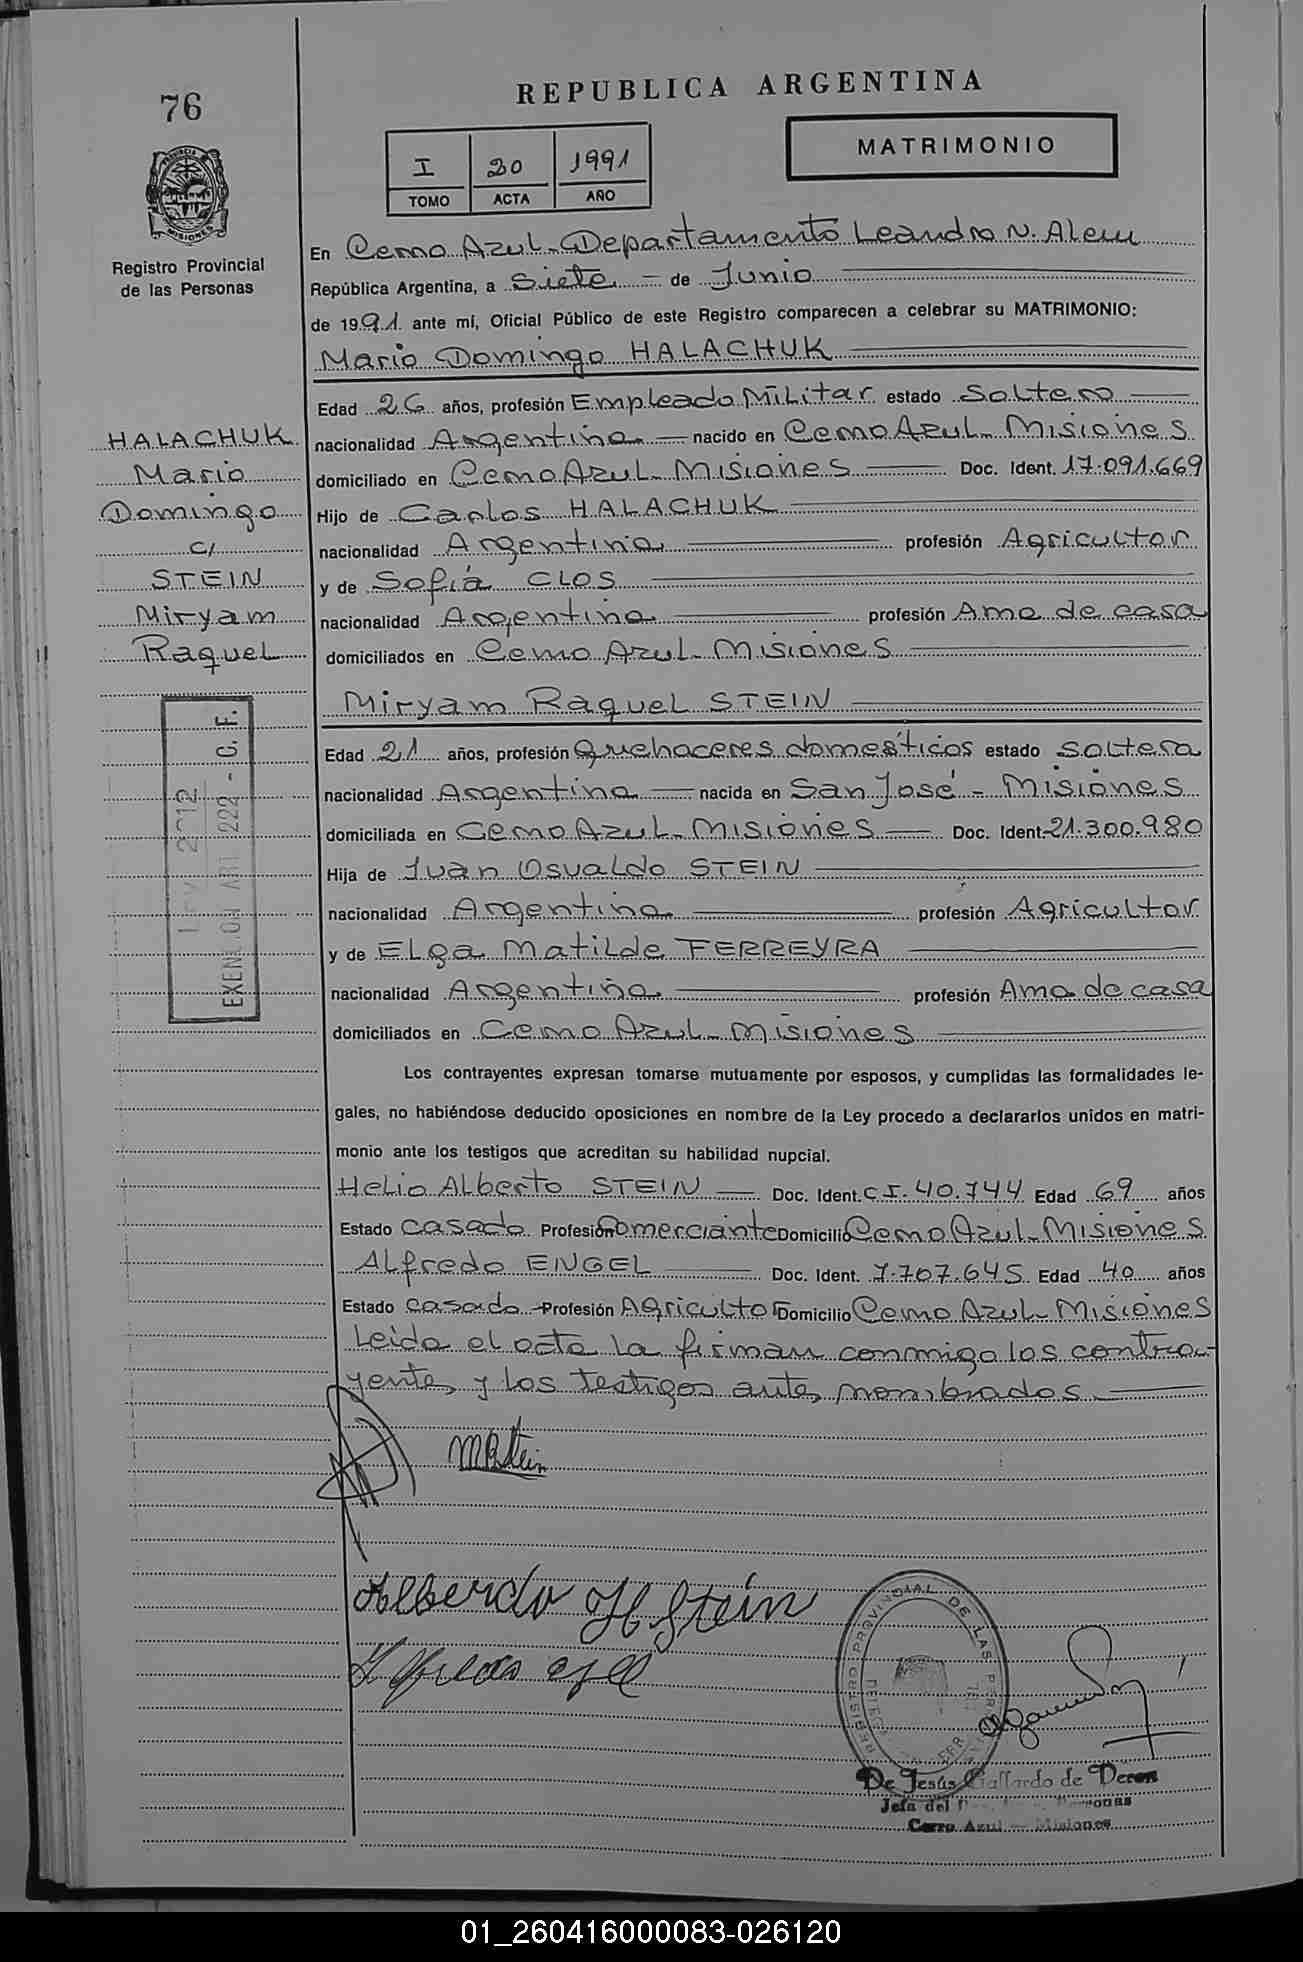 76
REPUBLICA ARGENTINA
MATRIMONIO
I 20 1991
TOMO ACTA AÑO
PROVINCIA DE MISIONES
Registro Provincial
de las Personas
En Cerro Azul - Departamento Leandro N. Alem
República Argentina, a Siete - de Junio
de 1991 ante mí, Oficial Público de este Registro comparecen a celebrar su MATRIMONIO:
Mario Domingo HALACHUK
Edad 26 años, profesión Empleado Militar estado Soltero
nacionalidad Argentina nacido en Cerro Azul - Misiones
domiciliado en Cerro Azul - Misiones Doc. Ident. 17.091.669
Hijo de Carlos HALACHUK
nacionalidad Argentina profesión Agricultor
y de Sofía CLOS
nacionalidad Argentina profesión Ama de casa
domiciliados en Cerro Azul - Misiones
HALACHUK
Mario
Domingo
c/
STEIN
Miryam
Raquel
Miryam Raquel STEIN
Edad 21 años, profesión Quehaceres domésticos estado soltera
nacionalidad Argentina nacida en San José - Misiones
domiciliada en Cerro Azul - Misiones Doc. Ident. 21.300.980
Hija de Juan Osvaldo STEIN
nacionalidad Argentina profesión Agricultor
y de Elga Matilde FERREYRA
nacionalidad Argentina profesión Ama de casa
domiciliados en Cerro Azul - Misiones
ART 222 - C. F.
Los contrayentes expresan tomarse mutuamente por esposos, y cumplidas las formalidades le-
gales, no habiéndose deducido oposiciones en nombre de la Ley procedo a declararlos unidos en matri-
monio ante los testigos que acreditan su habilidad nupcial.
Helio Alberto STEIN Doc. Ident. C.I. 40.744 Edad 69 años
Estado casado Profesión Comerciante Domicilio Cerro Azul - Misiones
Alfredo ENGEL Doc. Ident. 7.707.645 Edad 40 años
Estado casado Profesión Agricultor Domicilio Cerro Azul - Misiones
Leída el acta la firman conmigo los contra-
yentes y los testigos antes nombrados
MRStein
Alberdo H Stein
REGISTRO PROVINCIAL DE LAS
De Jesús Gallardo de Deron
Jefa del Personas
Cerro Azul - Misiones
01_260416000083-026120